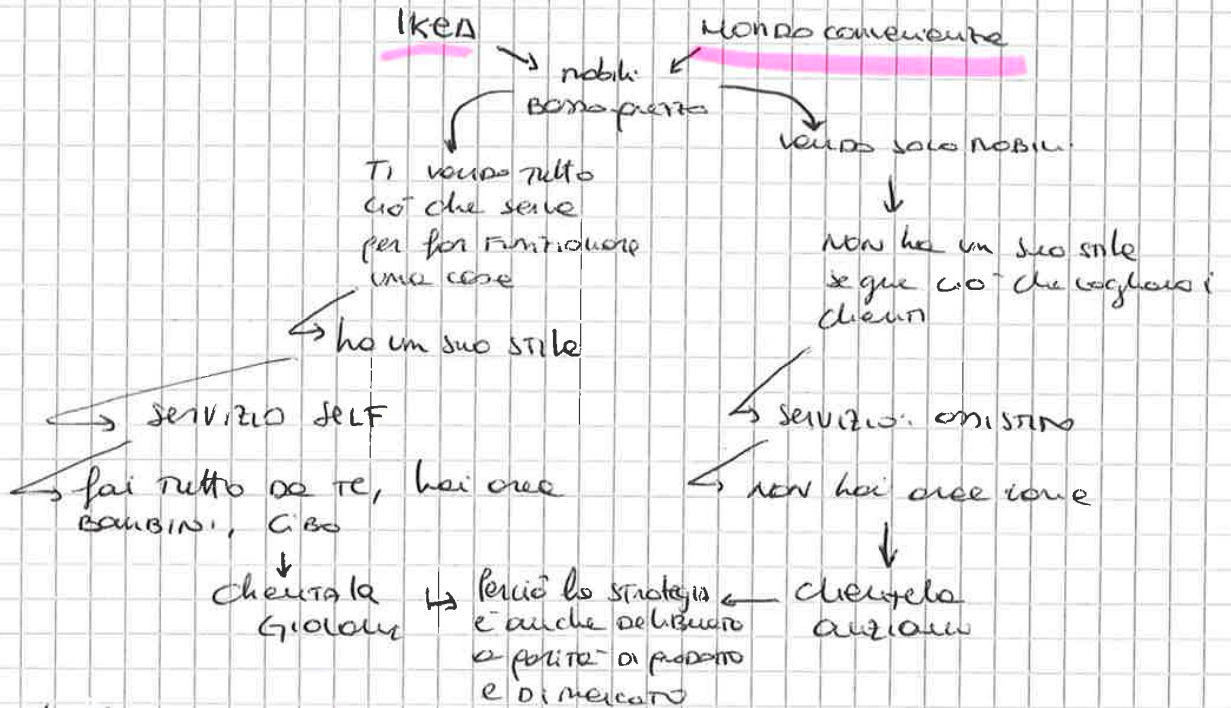 IKEA
Mondo convenienza
mobili
Basso prezzo
Ti vendo tutto
ciò che serve
per far funzionare
una casa
ha un suo stile
servizio self
fai tutto da te, hai aree
bambini, cibo
clientela
giovane
vendo solo mobili
non ha un suo stile
segue ciò che vogliono i
clienti
servizio: assistito
non hai aree
clientela
anziana
Perciò la strategia
è anche
a parità di prodotto
e di mercato